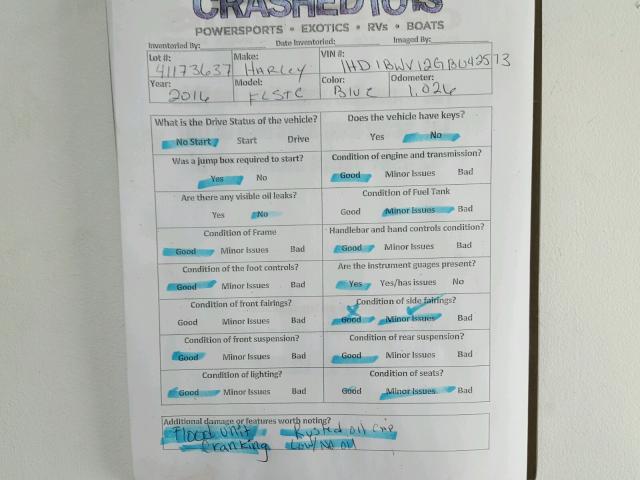 CRASHEDTOYS
POWERSPORTS • EXOTICS • RVs • BOATS
Inventoried By: Date Inventoried: Imaged By:
Lot #: Make: VIN #:
41173637 HARLEY 1HD1BWV12GB042573
Year: Model: Color: Odometer:
2016 FLSTC BLUE 1,026
What is the Drive Status of the vehicle? Does the vehicle have keys?
No Start Start Drive Yes No
Was a jump box required to start? Condition of engine and transmission?
Yes No Good Minor Issues Bad
Are there any visible oil leaks? Condition of Fuel Tank
Yes No Good Minor Issues Bad
Condition of Frame Handlebar and hand controls condition?
Good Minor Issues Bad Good Minor Issues Bad
Condition of the foot controls? Are the instrument guages present?
Good Minor Issues Bad Yes Yes/has issues No
Condition of front fairings? Condition of side fairings?
Good Minor Issues Bad Good Minor Issues Bad
Condition of front suspension? Condition of rear suspension?
Good Minor Issues Bad Good Minor Issues Bad
Condition of lighting? Condition of seats?
Good Minor Issues Bad Good Minor Issues Bad
Additional damage or features worth noting?
Flood unit Rusted oil
Cranking Low/No oil